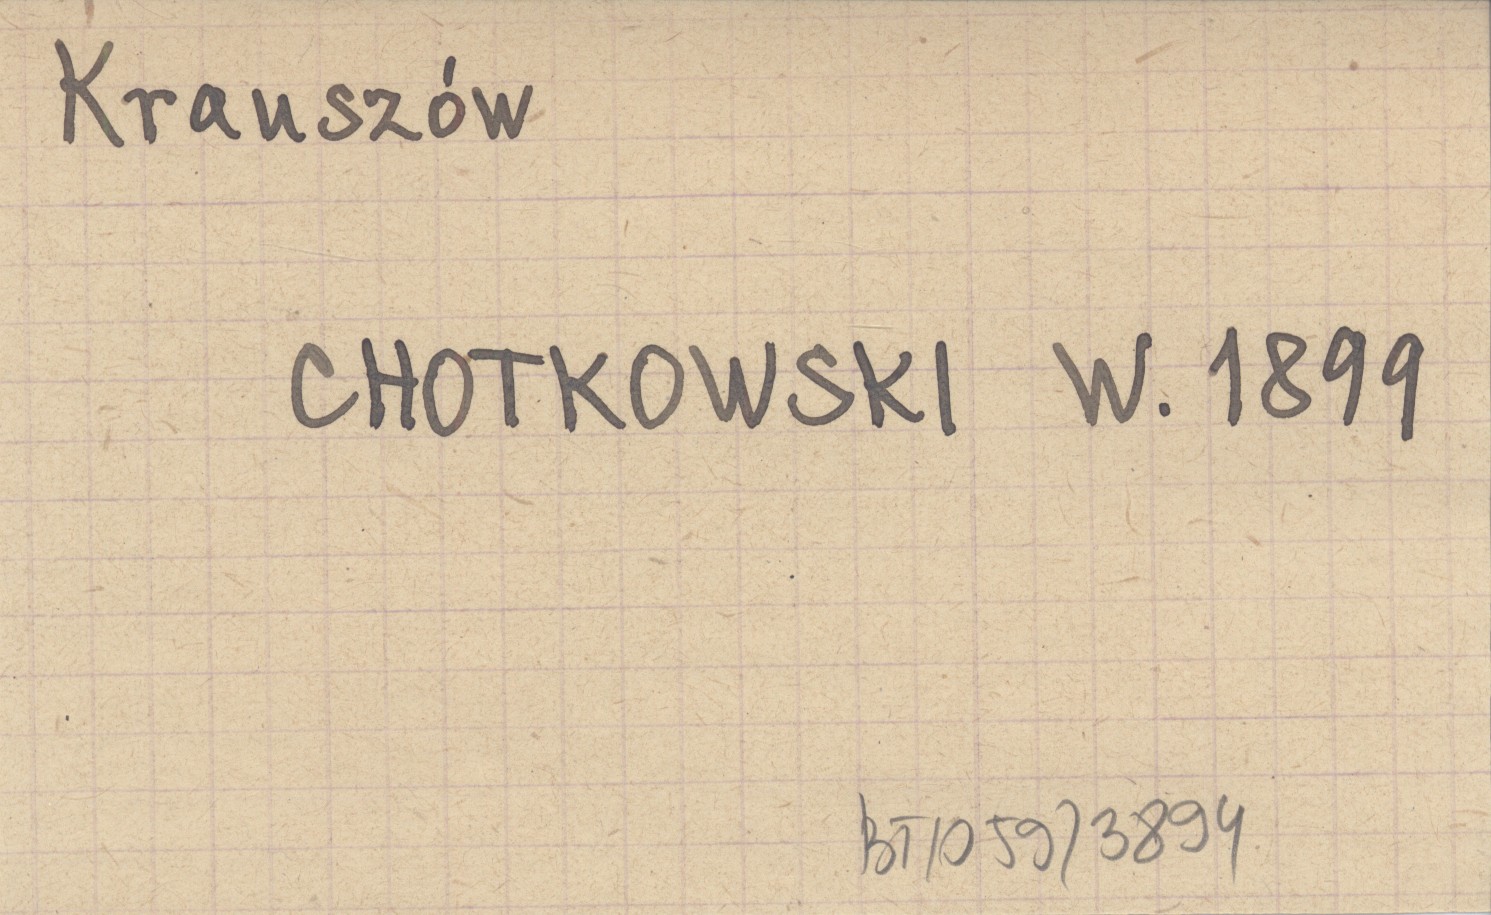 Krauszów
CHOTKOWSKI W. 1899
BT/059/3894